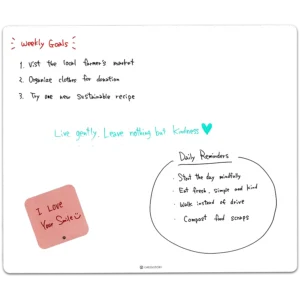 Weekly Goals
1. Visit the local farmer's market
2. Organize clothes for donation
3. Try one new sustainable recipe
Live gently. Leave nothing but kindness
Daily Reminders
· Start the day mindfully
· Eat fresh, simple and kind
· Walk instead of drive
· Compost food scraps
I Love
Your Smile